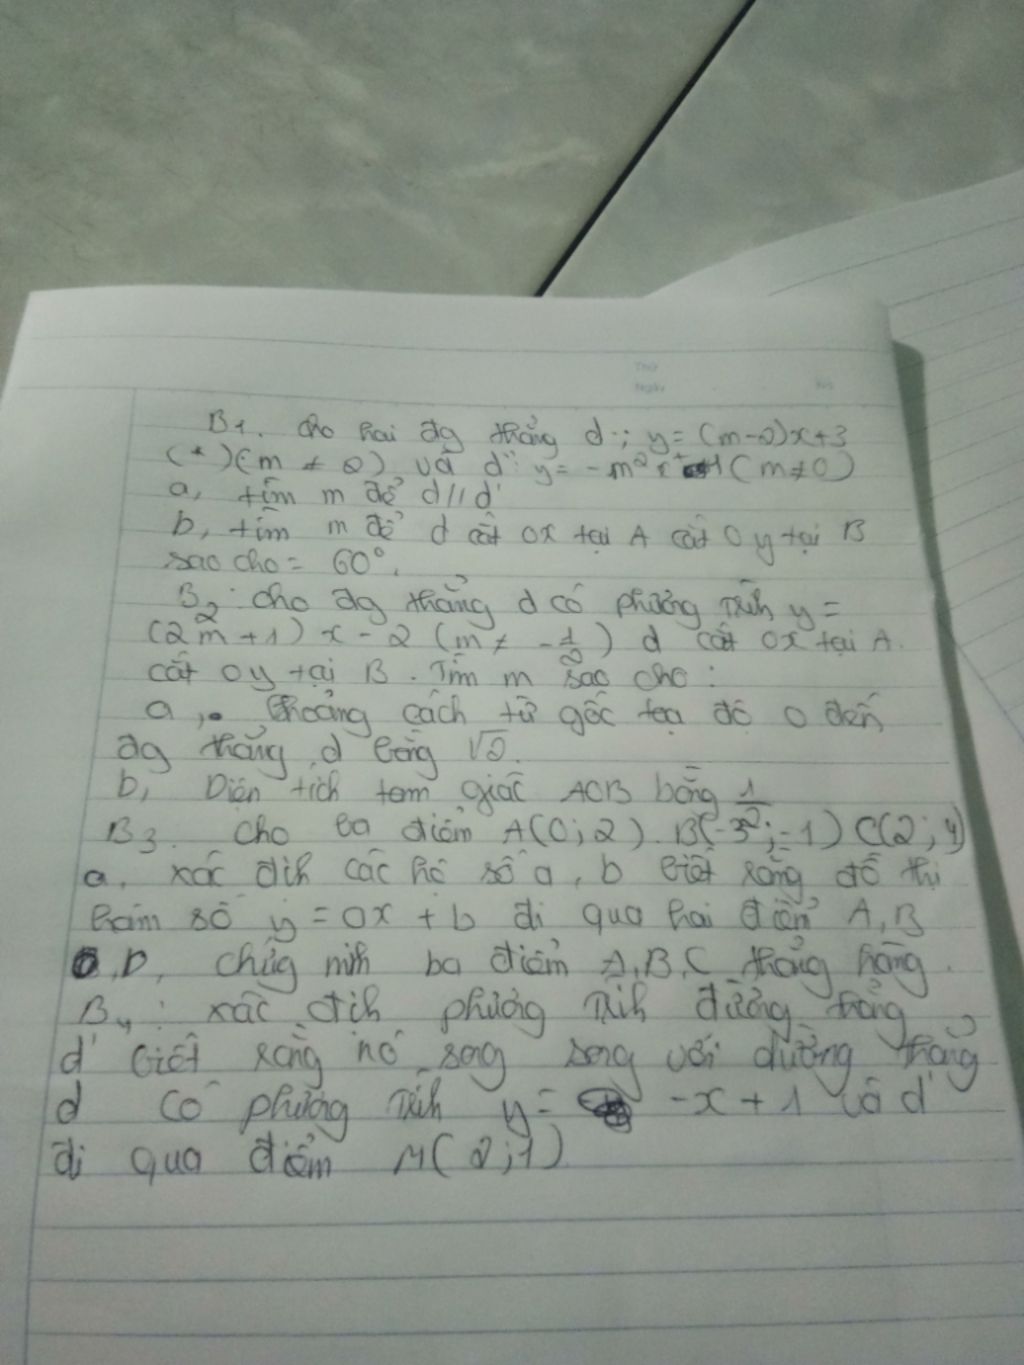 Thứ
Ngày
B1. cho hai đg thẳng d: y = (m-2)x+3
(*) (m ≠ 2) và d': y = -m²x+1 (m≠0)
a, tìm m để d//d'
b, tìm m để d cắt ox tại A cắt Oy tại B
sao cho = 60°.
B2: cho đg thẳng d có phương trình y =
(2m+1)x-2 (m ≠ -1/2) d cắt ox tại A.
cắt oy tại B. Tìm m sao cho:
a, khoảng cách từ gốc tọa độ o đến
đg thẳng d bằng √2.
b, Diện tích tam giác AOB bằng 1/2
B3. cho ba điểm A(0;2). B(-3;-1) C(2;4)
a, xác địh các hệ số a, b biết rằng đồ thị
hàm số y = ax + b đi qua hai điểm A, B
b, chứg mih ba điểm A,B,C thẳng hàng.
B4: xác địh phương trìh đường thẳng
d' biết rằng nó song song với đường thẳng
d có phương trìh y = -x+1 và d'
đi qua điểm M(2;1)